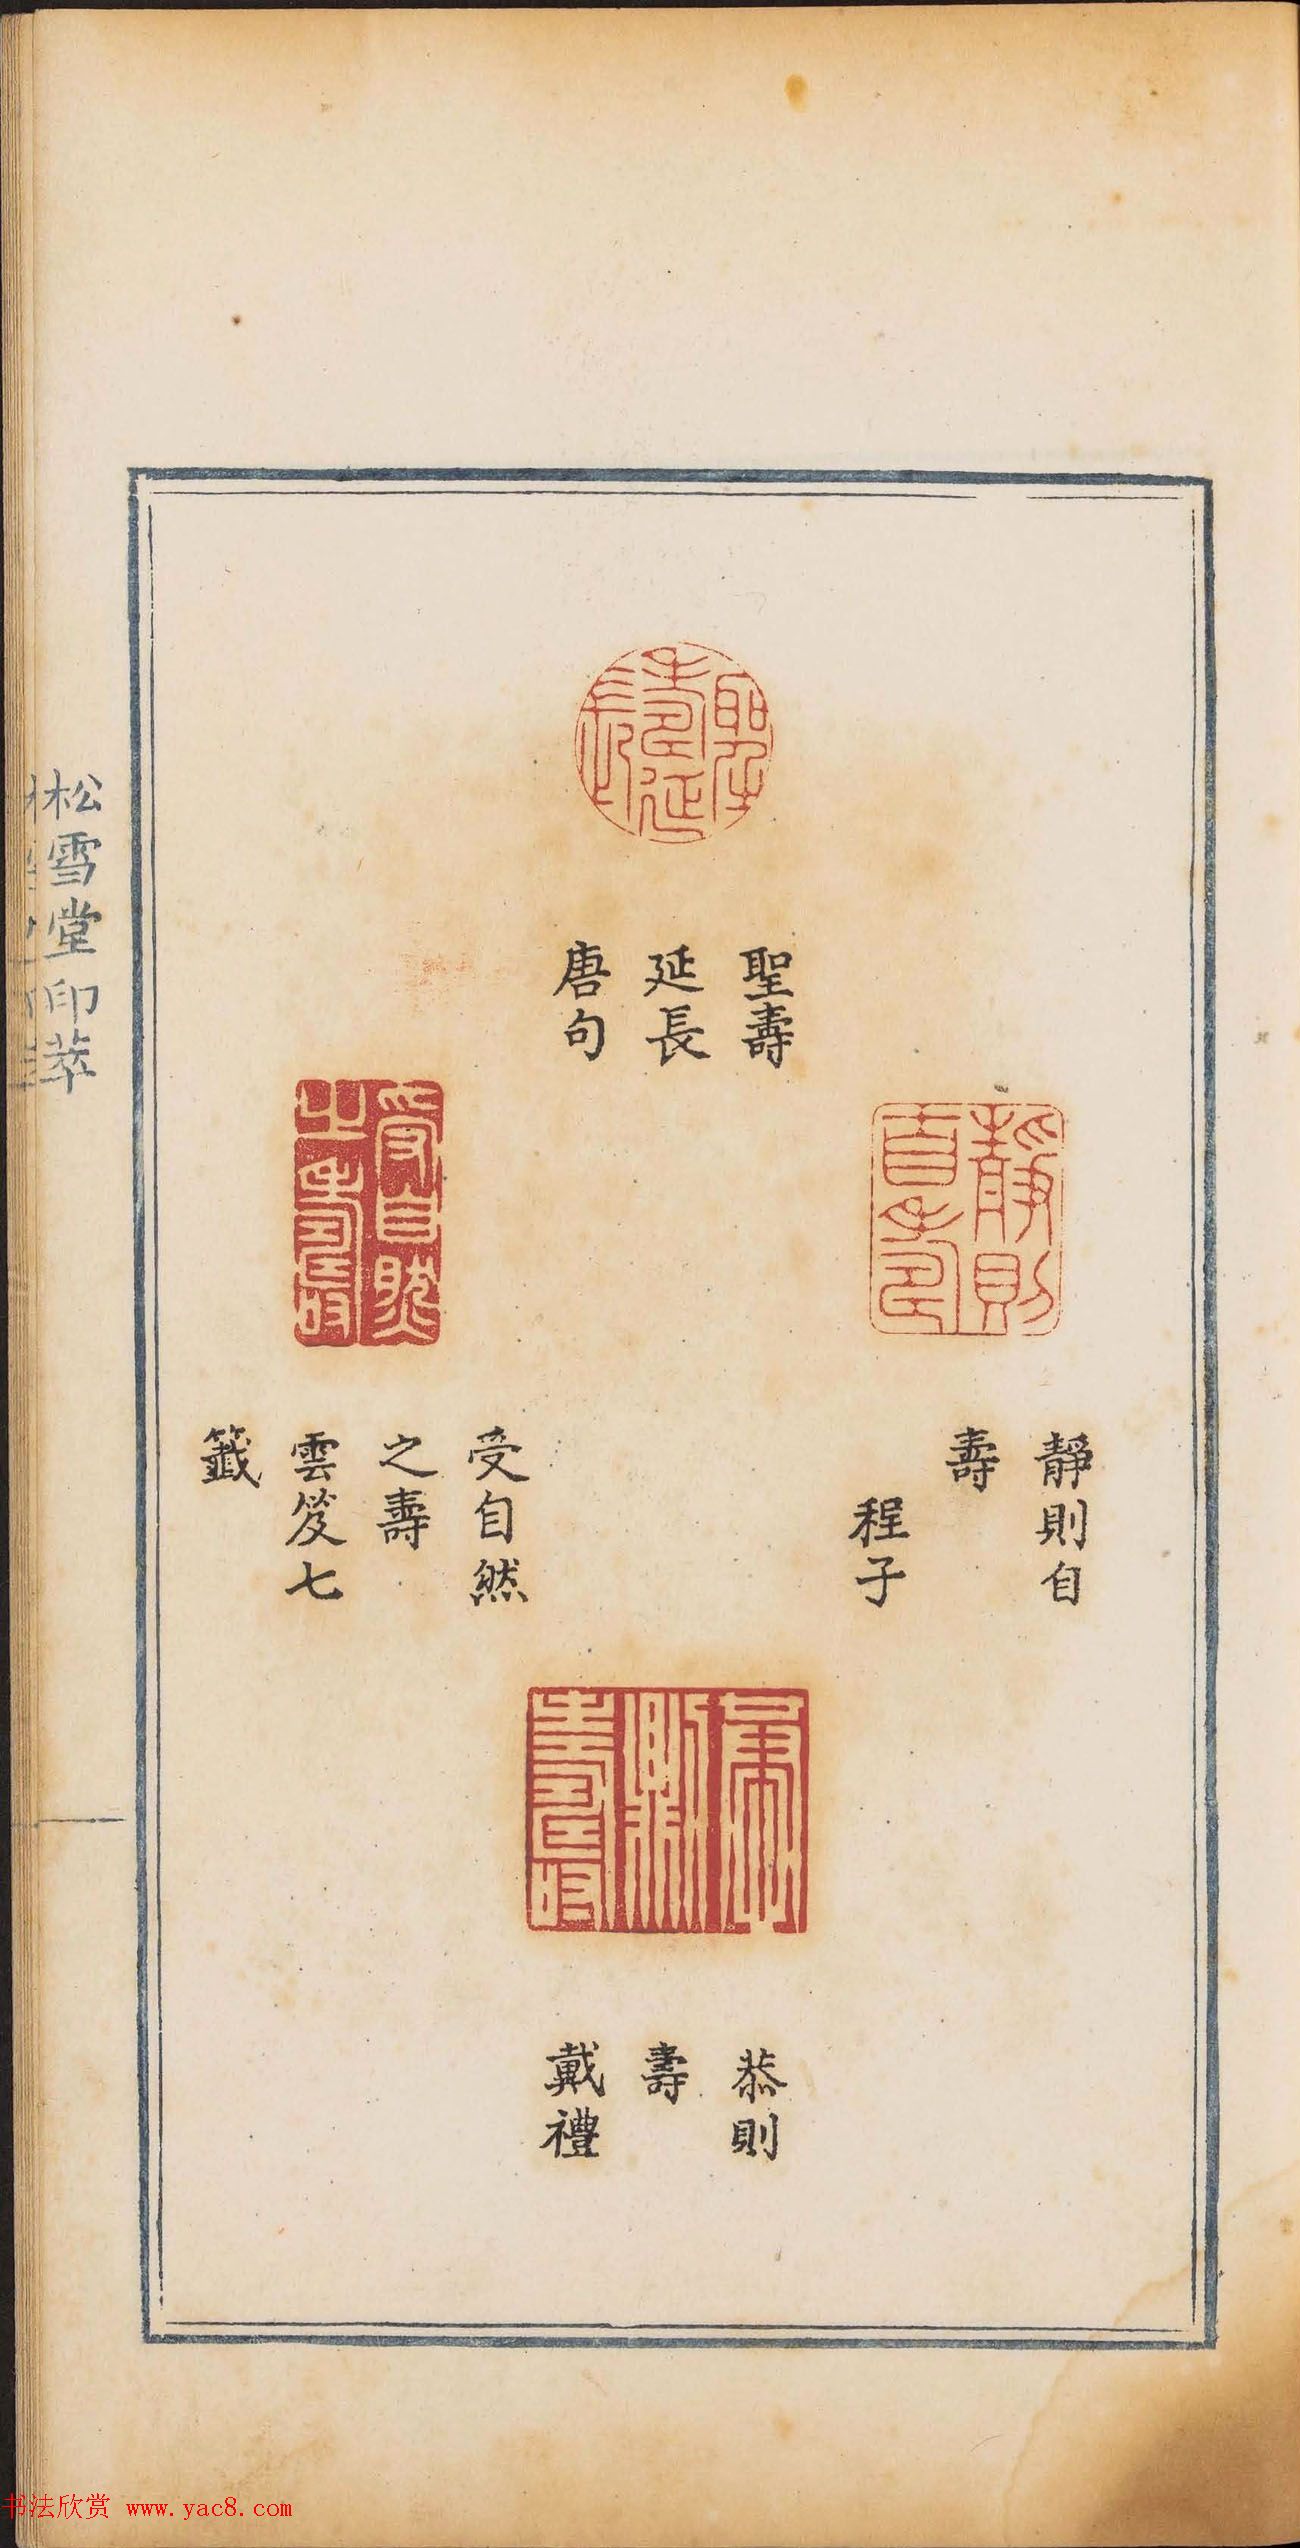 聖壽
延長
唐句
靜則自
壽
程子
受自然
之壽
雲笈七
籤
恭則
壽
戴禮
聖壽延長
靜則自壽
受自然之壽
恭則壽
松雪堂印萃
书法欣赏 www.yac8.com